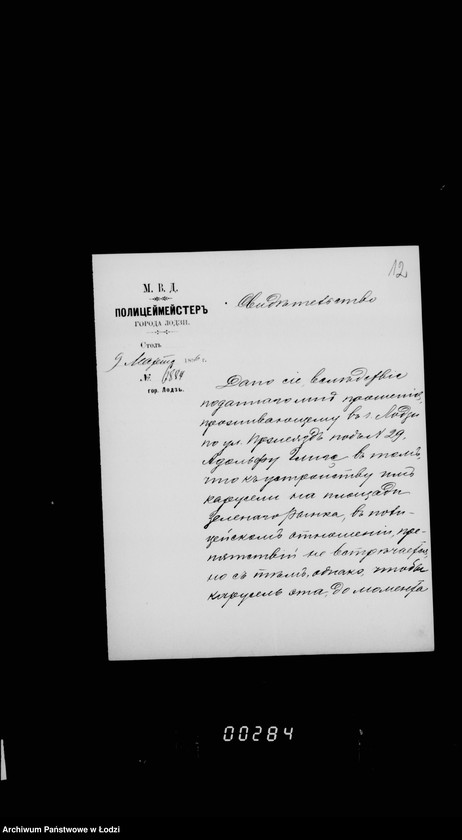 12
М. В. Д.
ПОЛИЦЕЙМЕЙСТЕРЪ
ГОРОДА ЛОДЗИ.
Столъ
9 Марта 188 г.
№ 1884
гор. Лодзь.
Свидѣтельство
Дано сіе, вслѣдствіе
поданнаго мнѣ прошенія,
проживающему въ г. Лодзи
по ул. подъ № 29,
Адольфу въ томъ,
что къ устройству имъ
карусели на площади
Зеленаго Рынка, въ поли-
цейскомъ отношеніи, пре-
пятствій не встрѣчается,
но съ тѣмъ, однако, чтобы
карусель эта, до момента
00284
Archiwum Państwowe w Łodzi